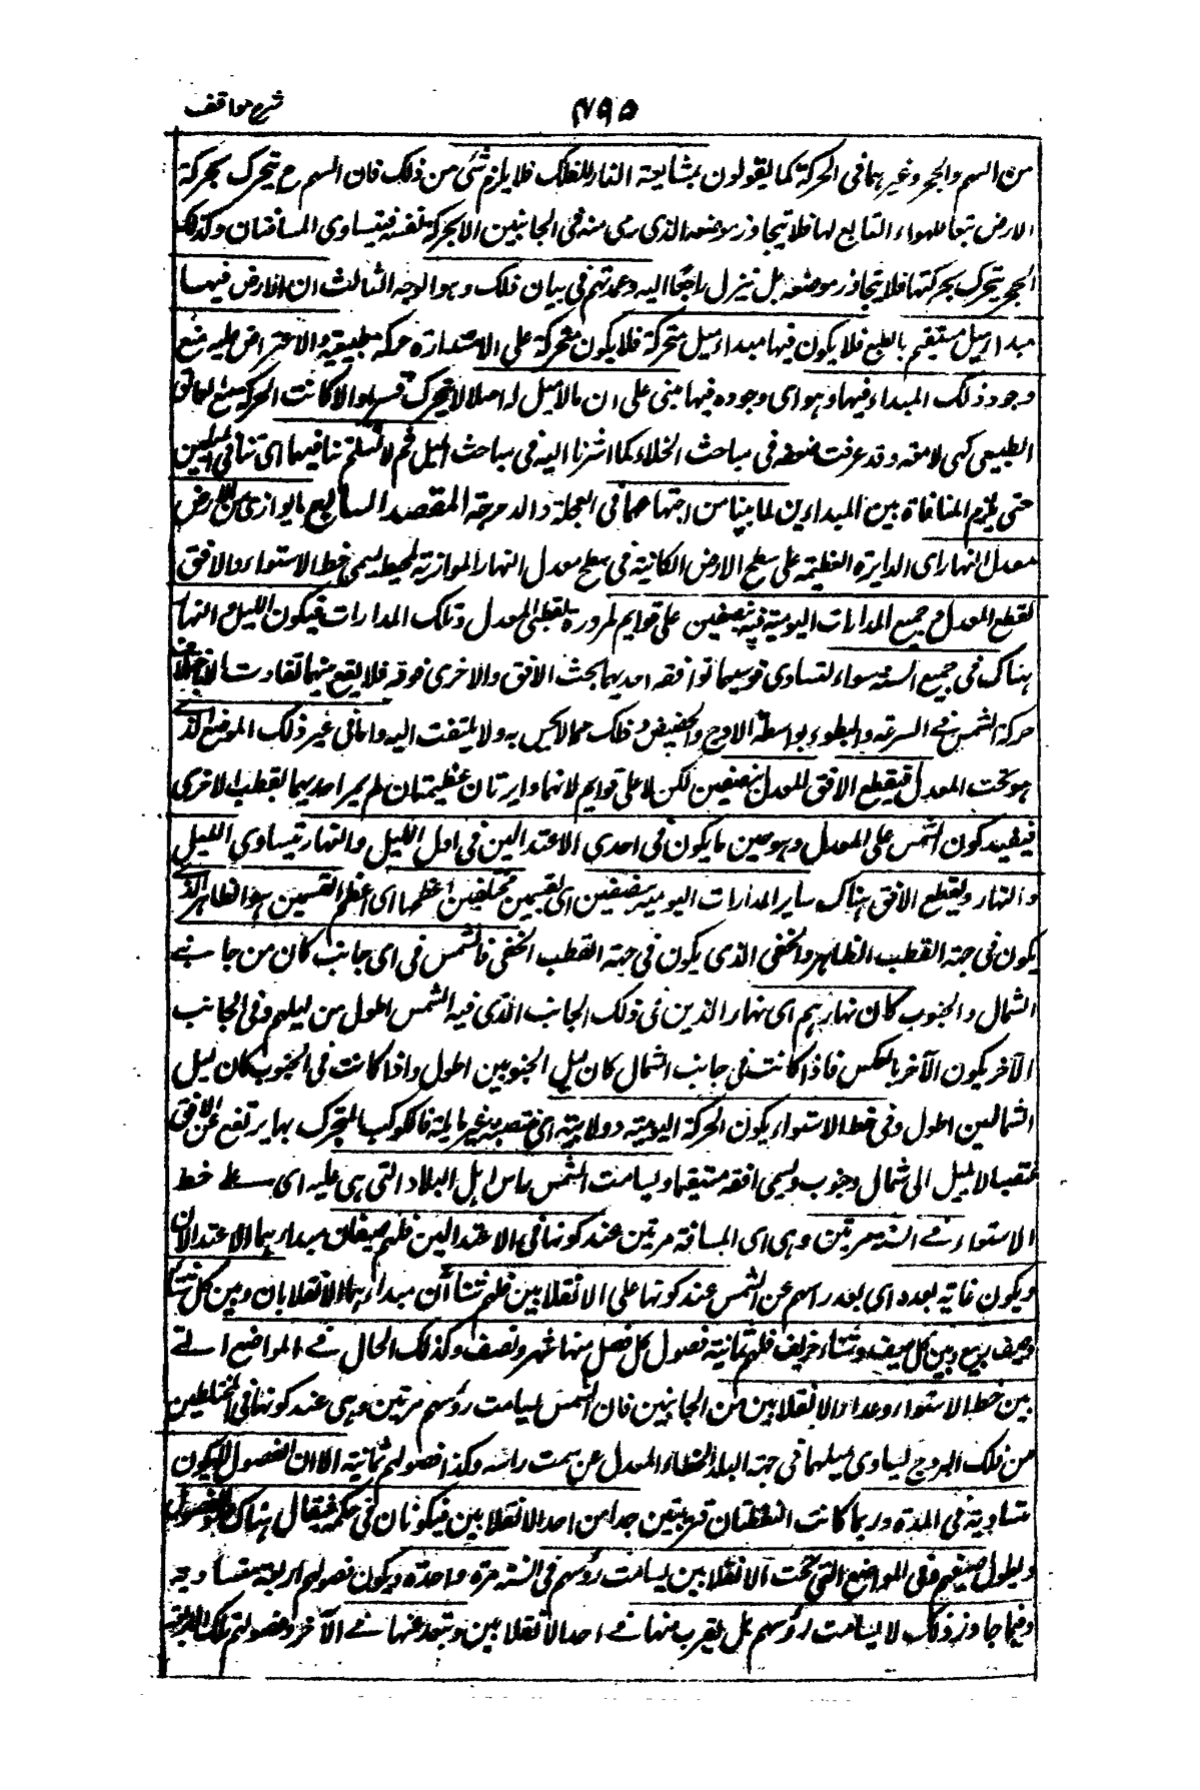 شرح مواقف
٤٩٥
من السهم والحجر وغيرهما فى الحركة كما يقولون بمشايعة النار للفلك فلا يلزم شئ من ذلك فان السهم ح يتحرك بحركة
الارض تبعا للهواء التابع لها فلا يتجاوز موضعه الذى رمى منه فى الجانبين الا بحركة نفسه فيتساوى المسافتان وكذلك
الحجر يتحرك بحركتها فلا يتجاوز موضعه بل ينزل راجعا اليه وعمدتهم فى بيان ذلك وهو الوجه الثالث ان الارض فيها
مبدا ميل مستقيم بالطبع فلا يكون فيها مبدا ميل متحركة فلا يكون متحركة على الاستدارة حركة طبيعية والاعتراض عليه منع
وجود ذلك المبدا فيها وهو اى وجوده فيها مبنى على ان مالا ميل له اصلا لا يتحرك قسرا والا كانت الحركة مع العائق
الطبيعى كهى لا معه وقد عرفت ضعفه فى مباحث الخلاء كما اشرنا اليه فى مباحث الميل ثم لا نسلم تنافيهما اى تنافى الميلين
حتى يلزم المنافاة بين المبداءين لما بينا من اجتماعهما فى العجلة والدحرجة المقصد السابع ما يوازى من الارض
معدل النهار اى الدايرة العظيمة على سطح الارض الكائنة فى سطح معدل النهار الموازية لمحيطه يسمى خط الاستواء والافق
يقطع المعدل وجميع المدارات اليومية فيه بنصفين على قوايم لمروره بقطبى المعدل وتلك المدارات فيكون الليل والنهار
هناك فى جميع السنة سواء لتساوى قوسيهما توافقه احديهما تحت الافق والاخرى فوقه فلا يقع بينهما تفاوت الا باختلاف
حركة الشمس فى السرعة والبطوء بواسطة الاوج والحضيض وذلك مما لا يحس به ولا يلتفت اليه واما فى غير ذلك الموضع الذى
هو تحت المعدل فيقطع الافق المعدل بنصفين لكن لا على قوايم لانهما دايرتان عظيمتان لم يمر احديهما بقطب الاخرى
فيفيد كون الشمس على المعدل وهو حين ما يكون فى احدى الاعتدالين فى اول الليل والنهار تساوى الليل
والنهار ويقطع الافق هناك ساير المدارات اليومية بنصفين اى بقسمين مختلفين اعظمها اى اعظم القسمين هو الظاهر الذى
يكون فى جهة القطب الظاهر والخفى الذى يكون فى جهة القطب الخفى فالشمس فى اى جانب كان من جانبى
الشمال والجنوب كان نهارهم اى نهار الذين فى ذلك الجانب الذى فيه الشمس اطول من ليلهم وفى الجانب
الآخر يكون الآخر بالعكس فاذا كانت فى جانب الشمال كان ليل الجنوبيين اطول واذا كانت فى الجنوب كان ليل
الشماليين اطول وفى خط الاستواء يكون الحركة اليومية دولابية اى منتصبة غير مايلة فالكوكب المتحرك بها يرتفع عن الافق
منتصبا لا يميل الى شمال وجنوب ويسمى افقه مستقيما ويسامت الشمس راس اهل البلاد التى هى عليه اى على خط
الاستواء فى السنة مرتين وهى اى المسامتة مرتين عند كونها فى الاعتدالين فلهم صيفان مبداهما الاعتدالان
ويكون غاية بعده اى بعد راسهم عن الشمس عند كونها على الانقلابين فلهم شتاآن مبداهما الانقلابان وبين كل شتاء
وصيف ربيع وبين كل صيف وشتاء خريف فلهم ثمانية فصول كل فصل منها شهر ونصف وكذلك الحال فى المواضع التى
بين خط الاستواء وعد الانقلابين من الجانبين فان الشمس يسامت رؤسهم مرتين وهى عند كونها فى النقطتين
من فلك البروج يساوى ميلهما فى جهة البلد المعدل عن سمت راسه وكذا فصولهم ثمانية الا ان الفصول لا يكون
متساوية فى المدة وربما كانت النقطتان قريبتين جدا من احد الانقلابين فيكونان فى حكمه فيقال هناك
ويطول صيفهم وفى المواضع التى تحت الانقلابين يسامت رؤسهم فى السنة مرة واحدة ويكون فصولهم اربعة متساوية
وفيما جاوز ذلك لا يسامت رؤسهم بل يقرب منها فى احد الانقلابين وتبعد عنها فى الآخر وفصولهم تلك الاربعة